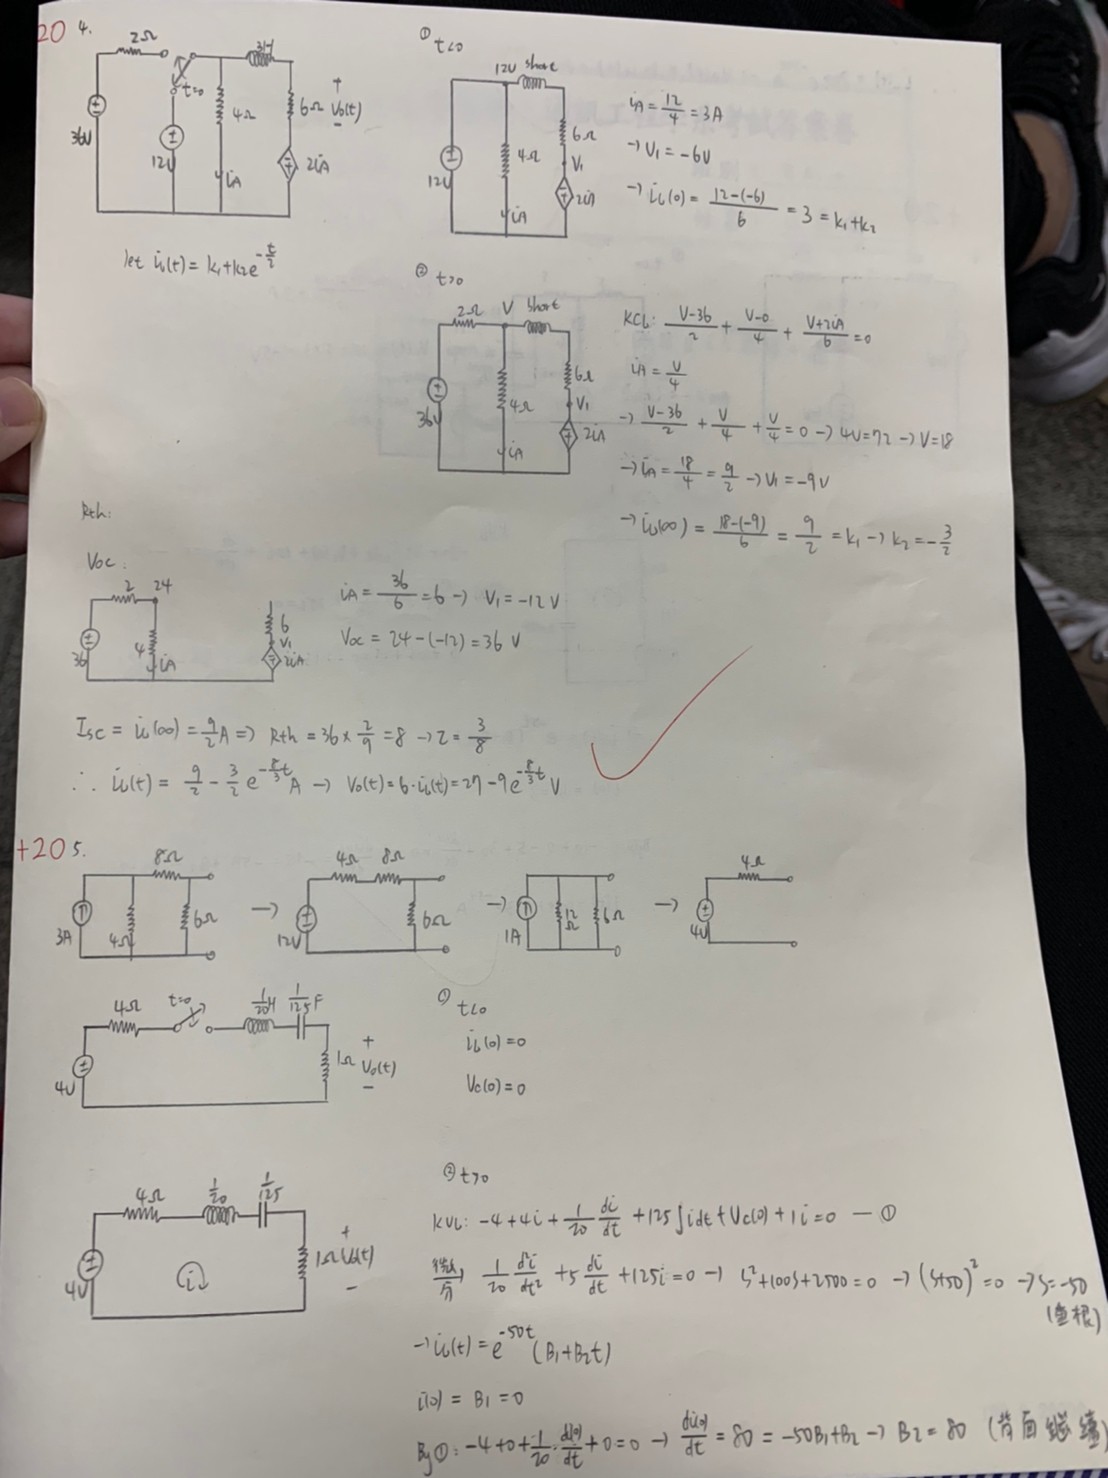 20 4.
2Ω
3H
36V
t=0
12V
4Ω
iA
6Ω
+
Vo(t)
-
2iA
let iL(t) = k1+k2e^-t/τ
① t<0
12V short
12V
4Ω
iA
6Ω
V1
2iA
iA = 12/4 = 3A
→ V1 = -6V
→ iL(0) = 12-(-6)/6 = 3 = k1+k2
② t>0
2Ω V short
36V
4Ω
iA
6Ω
V1
2iA
KCL: V-36/2 + V-0/4 + V+2iA/6 = 0
iA = V/4
→ V-36/2 + V/4 + V/4 = 0 → 4V=72 → V=18
→ iA = 18/4 = 9/2 → V1 = -9V
→ iL(∞) = 18-(-9)/6 = 9/2 = k1 → k2 = -3/2
Rth:
Voc:
2 24
36
4
iA
6
V1
2iA
iA = 36/6 = 6 → V1 = -12V
Voc = 24-(-12) = 36 V
Isc = iL(∞) = 9/2 A ⇒ Rth = 36 × 2/9 = 8 → τ = 3/8
∴ iL(t) = 9/2 - 3/2 e^-8/3t A → Vo(t) = 6·iL(t) = 27-9e^-8/3t V
+20 5.
3A
4Ω
8Ω
6Ω
→
12V
4Ω 8Ω
6Ω
→
1A
12Ω
6Ω
→
4V
4Ω
4V
4Ω
t=0
1/20H 1/125F
1Ω
+
Vo(t)
-
① t<0
iL(0) = 0
Vc(0) = 0
4V
4Ω
1/20
1/125
i
1Ω
+
Vo(t)
-
② t>0
KVL: -4+4i+1/20 di/dt +125∫idt+Vc(0)+1i=0 — ①
微分 1/20 d²i/dt² +5 di/dt +125i=0 → S²+100S+2500=0 → (S+50)²=0 → S=-50
(重根)
→ iL(t) = e^-50t (B1+B2t)
i(0) = B1 = 0
By①: -4+0+1/20·di(0)/dt+0=0 → di(0)/dt = 80 = -50B1+B2 → B2 = 80 (背面繼續)